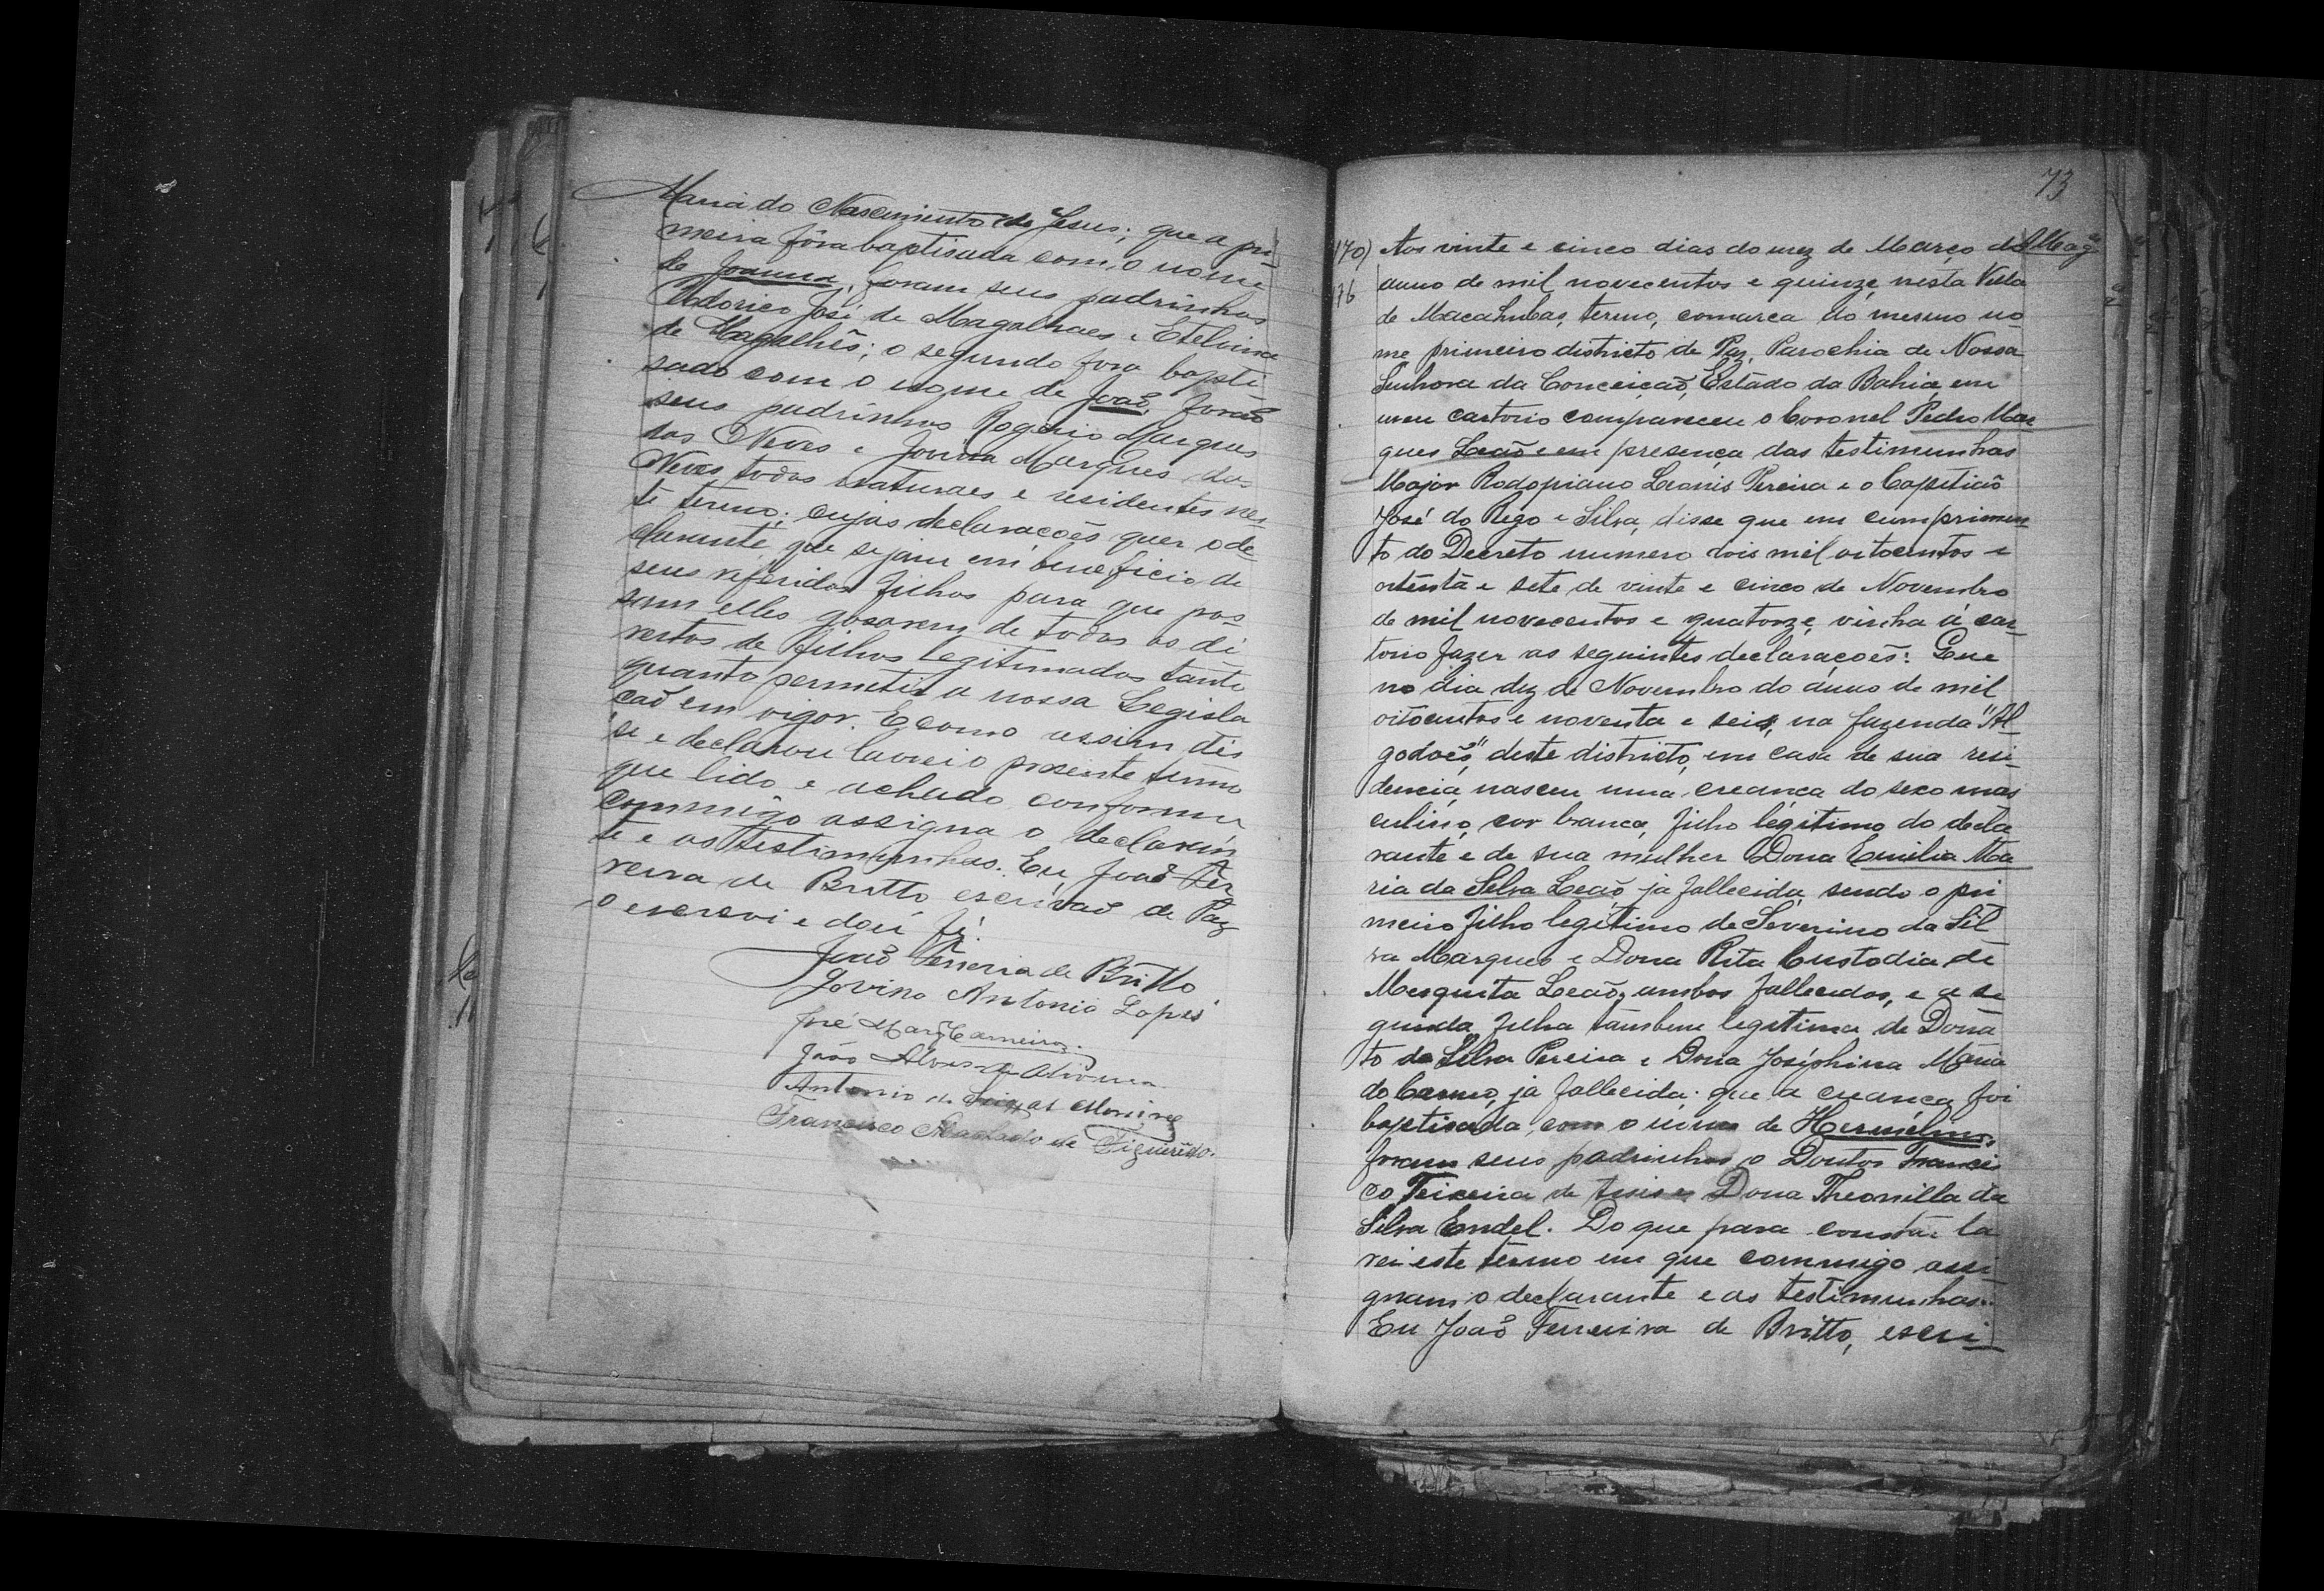 Maria do Nascimento de Jesus; que a pri-
meira fôra baptisada com o nome
de Joanna, foram seus padrinhos
José de Magalhaes e Etelvina
de Magalhês; o segundo fora bapti
sado com o nome de Joaõ, foraõ
seus padrinhos Rogerio Marques
das Neves e Jovina Marques das
Neves todos naturaes e residentes nes
te termo; cujas declaracoẽs quer o de
clarante que sejam em beneficio de
seus referidos filhos para que pos
sam elles gosarem de todos os di
reitos de filhos legitimados tanto
quanto permetir a nossa Legisla
çaõ em vigor. E como assim dis
se e declarou lavrei o presente termo
que lido e achado conforme
commigo assigna o declaran
te e as testimunhas. Eu Joaõ Fer
reira de Britto escrivaõ de Paz
o escrevi e dou fé.
Joaõ Ferreira de Britto
Jovino Antonio Lopes
José Carneiro
João Alves de Oliveira
Antonio de
Francisco Machado de Figueiredo.
73
170) Aos vinte e cinco dias do mez de Março do
anno de mil novecentos e quinze nesta Villa
de Macahubas, termo, comarca do mesmo no-
me primeiro districto de Paz, Parochia de Nossa
Senhora da Conceiçaõ, Estado da Bahia em
meu cartorio compareceu o Coronel Pedro Mar
ques Leaõ e em presença das testimunhas
Major Rodopiano Leonis Pereira e o Capitiaõ
José do Rego e Silva, disse que em cumprimen
to do Decreto numero dois mil oitocentos e
oitenta e sete de vinte e cinco de Novembro
de mil novecentos e quatorze, vinha á car-
torio fazer as seguintes declaraçoẽs: Que
no dia dez de Novembro do anno de mil
oitocentos e noventa e seis, na fazenda "Al-
godoẽs", deste districto, em casa de sua resi-
dencia, nasceu uma creança do sexo mas
culino, cor branca, filho légitimo do decla
rante e de sua mulher Dona Emilia Ma
ria da Silva Leaõ, ja fallecida, sendo o pri
meiro filho legitimo de Severino da Sil
va Marques e Dona Rita Custodia de
Mesquita Leaõ, ambos fallecidos, e a se
gunda filha tambem legitima de Dona
to da Silva Pereira e Dona Joséphina Maria
do Carmo, ja fallecida: que a creança foi
baptisada com o nome de Hermélino,
foram seus padrinhos o Doutor Francis
co Teixeira de Assis e Dona Theonilla da
Silva Endel. Do que para constar la
vrei este termo em que commigo assi-
gnam o declarante e as testimunhas.
Eu Joaõ Ferreira de Britto, escri-